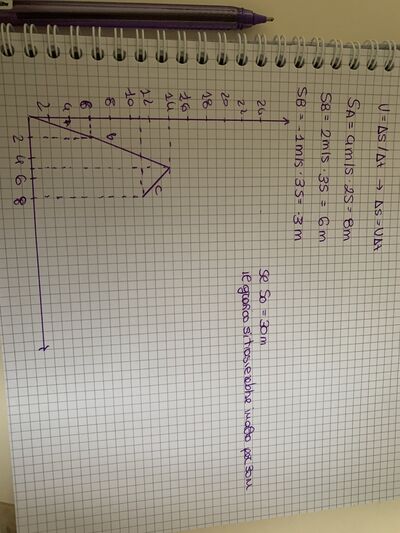 V = Δs/Δt → Δs = VΔt
SA = 4m/s · 2s = 8m
SB = 2m/s · 3s = 6m
SB = -1m/s · 3s = -3m
24
22
20
18
16
14
12
10
8
6
4
2
A
B
C
2 4 6 8
se S0 = 30m
il grafico si in alto per 30m